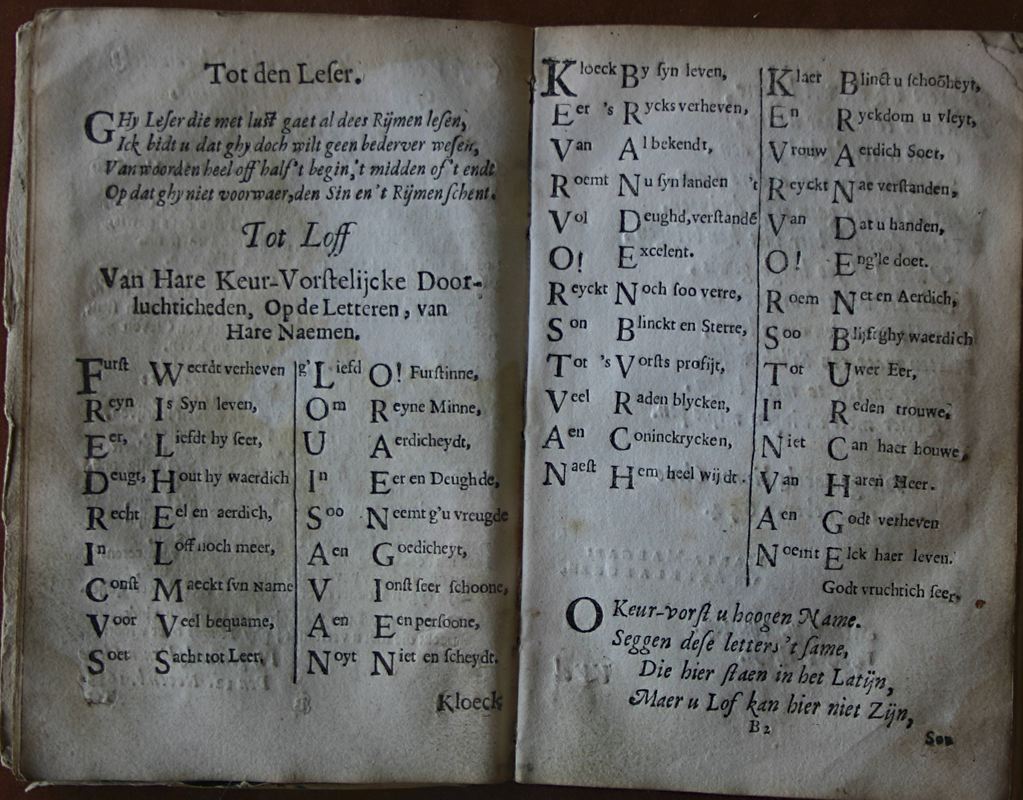 Tot den Leſer.
GHy Leſer die met luſt gaet al dees Rijmen leſen,
Ick bidt u dat ghy doch wilt geen bederver weſen,
Van woorden heel off half 't begin, 't midden of 't endt
Op dat ghy niet voorwaer, den Sin en 't Rijmen ſchent.
Tot Loff
Van Hare Keur-Vorſtelijcke Door-
luchticheden, Op de Letteren, van
Hare Naemen.
Furſt Weerdt verheven
Reyn Is Syn leven,
Eer, Liefdt hy ſeer,
Deugt, Hout hy waerdich
Recht Eel en aerdich,
In Loff noch meer,
Conſt Maeckt ſyn Name
Voor Veel bequame,
Soet Sacht tot Leer,
g'Liefd O! Furſtinne,
Om Reyne Minne,
U Aerdicheydt,
In Eer en Deughde,
Soo Neemt g'u vreugde
Aen Goedicheyt,
V Ionſt ſeer ſchoone,
Aen Een perſoone,
Noyt Niet en ſcheydt.
Kloeck
Kloeck By ſyn leven,
Eer 's Rycks verheven,
Van Al bekendt,
Roemt Nu ſyn landen
Vol Deughd, verſtandē
O! Excelent.
Reyckt Noch ſoo verre,
Son Blinckt en Sterre,
Tot 's Vorſts profijt,
Veel Raden blycken,
Aen Coninckrycken,
Naeſt Hem heel wijdt.
Klaer Blinct u ſchoōheyt,
En Ryckdom u vleyt,
Vrouw Aerdich Soet,
't Reyckt Nae verſtanden,
Van Dat u handen,
O! Eng'le doet.
Roem Net en Aerdich,
Soo Blijft ghy waerdich
Tot Uwer Eer,
In Reden trouwe,
Niet Can haer houwe,
Van Haren Heer.
Aen Godt verheven
Noemt Elck haer leven.
Godt vruchtich ſeer,
O Keur-vorſt u hoogen Name.
Seggen deſe letters 't ſame,
Die hier ſtaen in het Latijn,
Maer u Lof kan hier niet Zijn,
B 2
Son